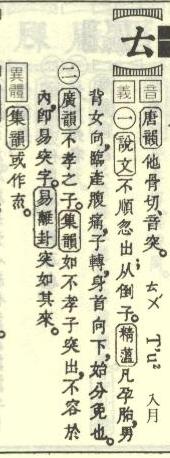 𠫓
音 唐韻 他骨切、音突。 ㄊㄨ T'u² 入月
義 一 說文 不順忽出、从倒子。 精薀 凡孕胎、男
背女向、臨產腹痛、子轉身首向下、始分免也。
二 廣韻 不孝之子。 集韻 如不孝子突出、不容於
內、即易突字。 易離卦 突如其來。
異體 集韻 或作㐬。